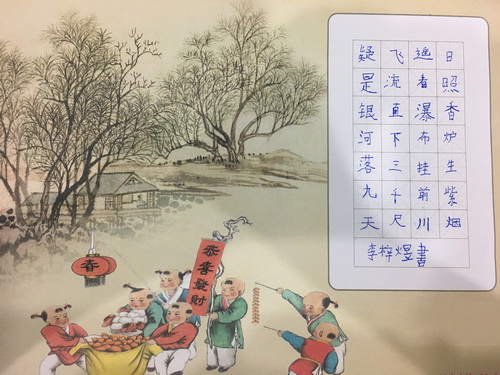 日照香炉生紫烟
遥看瀑布挂前川
飞流直下三千尺
疑是银河落九天
李梓煜書
恭喜發財
春